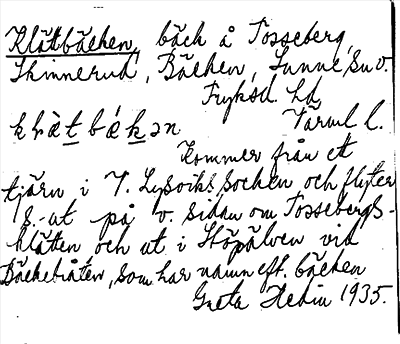 Klättbäcken, bäck å Tosseberg,
Skinnerud, Bäcken, Sunne sn v.
Fryksd. hd
klätbäkən Värml l.
Kommer från ett
tjärn i V. Lysviks socken och flyter
s.-ut på v. sidan om Tossebergs-
klätten, och ut i Stöpälven vid
Bäckebråten, som har namn eft. bäcken
Greta Hedin 1935.